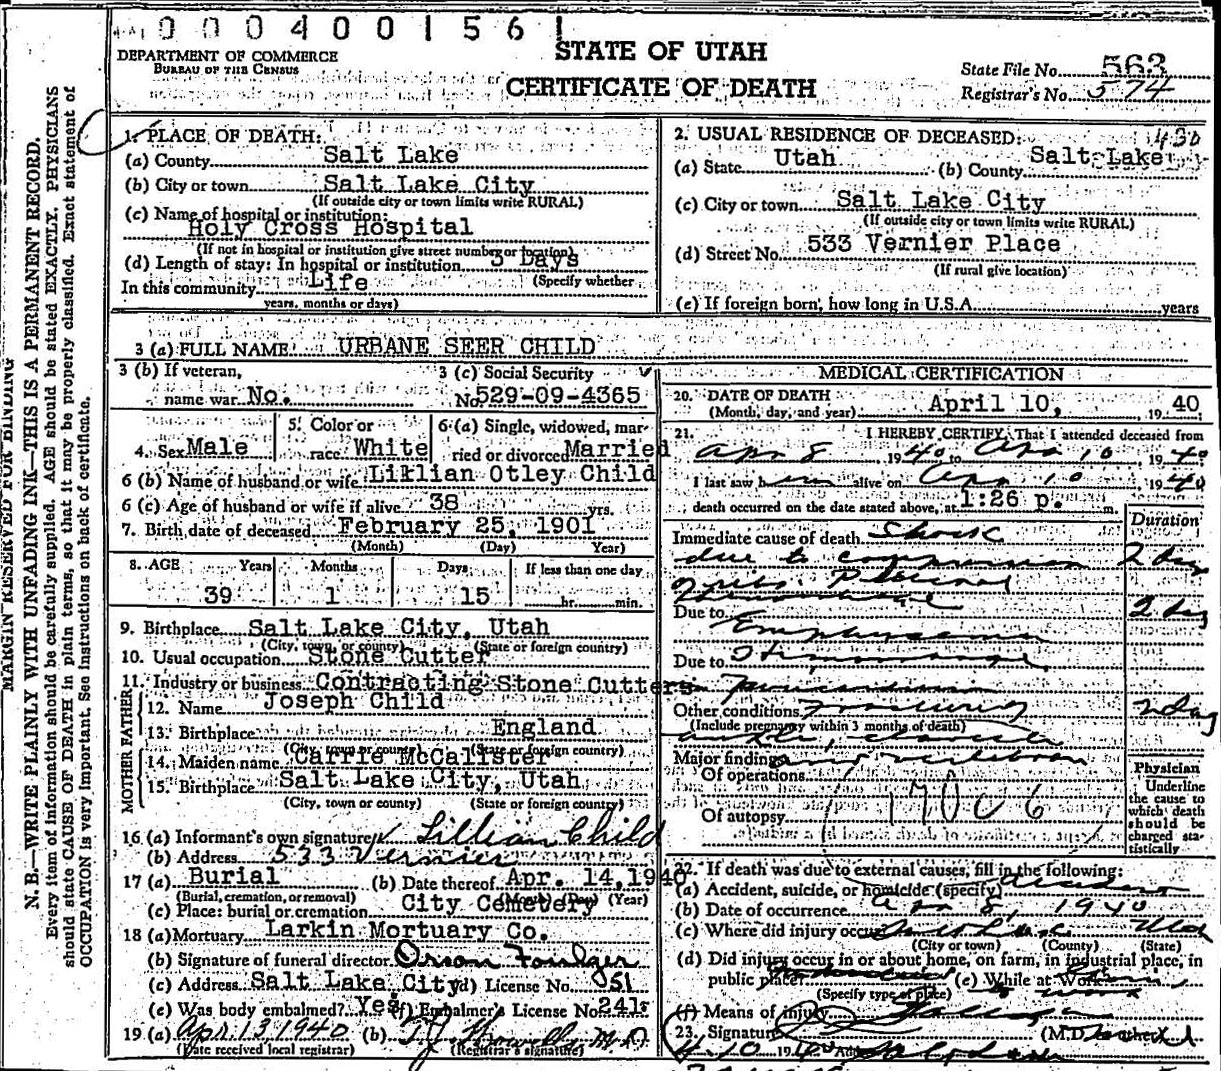 0004001561
DEPARTMENT OF COMMERCE
BUREAU OF THE CENSUS
STATE OF UTAH
CERTIFICATE OF DEATH
State File No. 563
Registrar's No. 574
MARGIN RESERVED FOR BINDING
N. B.—WRITE PLAINLY WITH UNFADING INK—THIS IS A PERMANENT RECORD.
Every item of information should be carefully supplied. AGE should be stated EXACTLY. PHYSICIANS
should state CAUSE OF DEATH in plain terms, so that it may be properly classified. Exact statement of
OCCUPATION is very important. See Instructions on back of certificate.
1. PLACE OF DEATH:
(a) County Salt Lake
(b) City or town Salt Lake City
(If outside city or town limits write RURAL)
(c) Name of hospital or institution:
Holy Cross Hospital
(If not in hospital or institution give street number or location)
(d) Length of stay: In hospital or institution 3 Days
(Specify whether
In this community Life
years, months or days)
2. USUAL RESIDENCE OF DECEASED: 430
(a) State Utah (b) County Salt Lake
(c) City or town Salt Lake City
(If outside city or town limits write RURAL)
(d) Street No. 533 Vernier Place
(If rural give location)
(e) If foreign born, how long in U.S.A. years
3 (a) FULL NAME URBANE SEER CHILD
3 (b) If veteran,
name war No.
3 (c) Social Security
No. 529-09-4365
4. Sex Male
5. Color or
race White
6 (a) Single, widowed, mar-
ried or divorced Married
6 (b) Name of husband or wife Lillian Otley Child
6 (c) Age of husband or wife if alive 38 yrs.
7. Birth date of deceased February 25, 1901
(Month) (Day) Year)
8. AGE Years Months Days If less than one day
39 1 15 hr. min.
9. Birthplace Salt Lake City, Utah
(City, town, or county) (State or foreign country)
10. Usual occupation Stone Cutter
11. Industry or business Contracting Stone Cutters
FATHER
12. Name Joseph Child
13. Birthplace England
(City, town or county) (State or foreign country)
MOTHER
14. Maiden name Carrie McCalister
15. Birthplace Salt Lake City, Utah
(City, town or county) (State or foreign country)
16 (a) Informant's own signature Lillian Child
(b) Address 533 Vernier
17 (a) Burial (b) Date thereof Apr. 14, 1940
(Burial, cremation, or removal) (Month) (Day) (Year)
(c) Place: burial or cremation City Cemetery
18 (a) Mortuary Larkin Mortuary Co.
(b) Signature of funeral director Orson Foulger
(c) Address Salt Lake City (d) License No. 051
(e) Was body embalmed? Yes (f) Embalmer's License No. 241
19 (a) Apr. 13, 1940 (b) M.D.
(Date received local registrar) (Registrar's signature)
MEDICAL CERTIFICATION
20. DATE OF DEATH
(Month, day, and year) April 10, 1940
21. I HEREBY CERTIFY, That I attended deceased from
Apr 8 1940, to Apr 10 1940
I last saw him alive on Apr 10, 1940
death occurred on the date stated above, at 1:26 p. m.
Duration
Immediate cause of death Shock
due to compression 2 day
Hemorrhage
Due to Emphysema 2 day
Due to Hemorrhage
in pericardium
Other conditions Fractured 2 day
(Include pregnancy within 3 months of death)
Major findings
Of operations
Of autopsy
Physician
Underline
the cause to
which death
should be
charged sta-
tistically
22. If death was due to external causes, fill in the following:
(a) Accident, suicide, or homicide (specify) Accident
(b) Date of occurrence Apr 8, 1940
(c) Where did injury occur Salt Lake Utah
(City or town) (County) (State)
(d) Did injury occur in or about home, on farm, in industrial place, in
public place? Industrial (e) While at Work?
(Specify type of place)
(f) Means of injury
23. Signature (M.D.
4-10 1940 Address